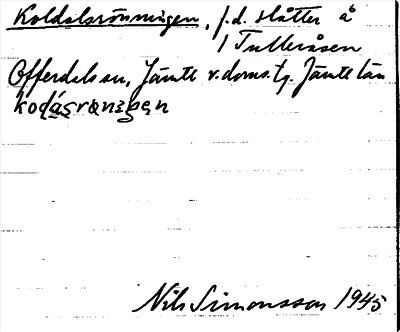 Koldalsrönningen, f.d. slåtter å
/ Tulleråsen
Offerdals sn, Jämtl v. doms. tg. Jämtl län
Nils Simonsson 1945